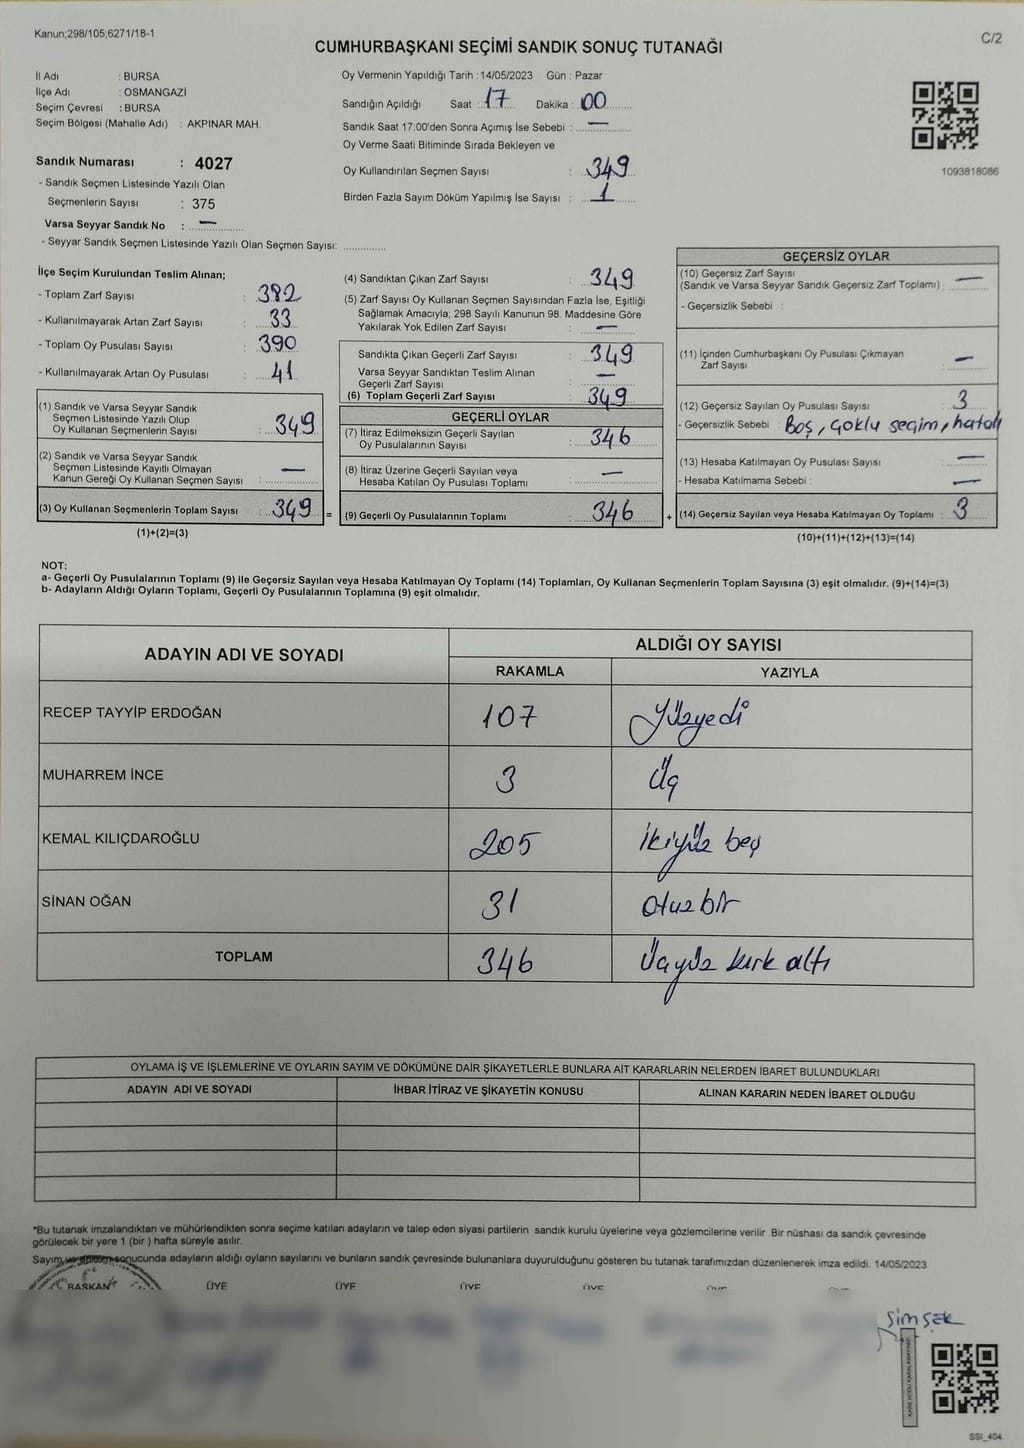 Kanun;298/105;6271/18-1
C/2
CUMHURBAŞKANI SEÇİMİ SANDIK SONUÇ TUTANAĞI
İl Adı : BURSA
İlçe Adı : OSMANGAZİ
Seçim Çevresi : BURSA
Seçim Bölgesi (Mahalle Adı) : AKPINAR MAH.
Sandık Numarası : 4027
- Sandık Seçmen Listesinde Yazılı Olan
Seçmenlerin Sayısı : 375
Varsa Seyyar Sandık No : —
- Seyyar Sandık Seçmen Listesinde Yazılı Olan Seçmen Sayısı: ..............
Oy Vermenin Yapıldığı Tarih : 14/05/2023 Gün : Pazar
Sandığın Açıldığı Saat : 17 Dakika : 00
Sandık Saat 17:00'den Sonra Açımış İse Sebebi : —
Oy Verme Saati Bitiminde Sırada Bekleyen ve
Oy Kullandırılan Seçmen Sayısı : 349
Birden Fazla Sayım Döküm Yapılmış İse Sayısı : 1
1093818086
İlçe Seçim Kurulundan Teslim Alınan;
- Toplam Zarf Sayısı : 382
- Kullanılmayarak Artan Zarf Sayısı : 33
- Toplam Oy Pusulası Sayısı : 390
- Kullanılmayarak Artan Oy Pusulası : 41
(1) Sandık ve Varsa Seyyar Sandık
Seçmen Listesinde Yazılı Olup
Oy Kullanan Seçmenlerin Sayısı : 349
(2) Sandık ve Varsa Seyyar Sandık
Seçmen Listesinde Kayıtlı Olmayan
Kanun Gereği Oy Kullanan Seçmen Sayısı : —
(3) Oy Kullanan Seçmenlerin Toplam Sayısı : 349 =
(1)+(2)=(3)
(4) Sandıktan Çıkan Zarf Sayısı : 349
(5) Zarf Sayısı Oy Kullanan Seçmen Sayısından Fazla İse, Eşitliği
Sağlamak Amacıyla; 298 Sayılı Kanunun 98. Maddesine Göre
Yakılarak Yok Edilen Zarf Sayısı : —
Sandıkta Çıkan Geçerli Zarf Sayısı : 349
Varsa Seyyar Sandıktan Teslim Alınan
Geçerli Zarf Sayısı : —
(6) Toplam Geçerli Zarf Sayısı : 349
GEÇERLİ OYLAR
(7) İtiraz Edilmeksizin Geçerli Sayılan
Oy Pusulalarının Sayısı : 346
(8) İtiraz Üzerine Geçerli Sayılan veya
Hesaba Katılan Oy Pusulası Toplamı : —
(9) Geçerli Oy Pusulalarının Toplamı : 346 +
GEÇERSİZ OYLAR
(10) Geçersiz Zarf Sayısı
(Sandık ve Varsa Seyyar Sandık Geçersiz Zarf Toplamı) : —
- Geçersizlik Sebebi :
(11) İçinden Cumhurbaşkanı Oy Pusulası Çıkmayan
Zarf Sayısı : —
(12) Geçersiz Sayılan Oy Pusulası Sayısı : 3
- Geçersizlik Sebebi : Boş, çoklu seçim, hatalı
(13) Hesaba Katılmayan Oy Pusulası Sayısı : —
- Hesaba Katılmama Sebebi : —
(14) Geçersiz Sayılan veya Hesaba Katılmayan Oy Toplamı : 3
(10)+(11)+(12)+(13)=(14)
NOT:
a- Geçerli Oy Pusulalarının Toplamı (9) ile Geçersiz Sayılan veya Hesaba Katılmayan Oy Toplamı (14) Toplamları, Oy Kullanan Seçmenlerin Toplam Sayısına (3) eşit olmalıdır. (9)+(14)=(3)
b- Adayların Aldığı Oyların Toplamı, Geçerli Oy Pusulalarının Toplamına (9) eşit olmalıdır.
ADAYIN ADI VE SOYADI ALDIĞI OY SAYISI
RAKAMLA YAZIYLA
RECEP TAYYİP ERDOĞAN 107 Yüzyedi
MUHARREM İNCE 3 Üç
KEMAL KILIÇDAROĞLU 205 ikiyüz beş
SİNAN OĞAN 31 otuzbir
TOPLAM 346 Üçyüz kırk altı
OYLAMA İŞ VE İŞLEMLERİNE VE OYLARIN SAYIM VE DÖKÜMÜNE DAİR ŞİKAYETLERLE BUNLARA AİT KARARLARIN NELERDEN İBARET BULUNDUKLARI
ADAYIN ADI VE SOYADI İHBAR İTİRAZ VE ŞİKAYETİN KONUSU ALINAN KARARIN NEDEN İBARET OLDUĞU
*Bu tutanak imzalandıktan ve mühürlendikten sonra seçime katılan adayların ve talep eden siyasi partilerin sandık kurulu üyelerine veya gözlemcilerine verilir. Bir nüshası da sandık çevresinde
görülecek bir yere 1 (bir ) hafta süreyle asılır.
Sayım ve döküm sonucunda adayların aldığı oyların sayılarını ve bunların sandık çevresinde bulunanlara duyurulduğunu gösteren bu tutanak tarafımızdan düzenlenerek imza edildi. 14/05/2023
BAŞKAN ÜYE ÜYE ÜYE ÜYE
ŞİMŞEK
KARE KODU KARALAMAYINIZ
SSI_404